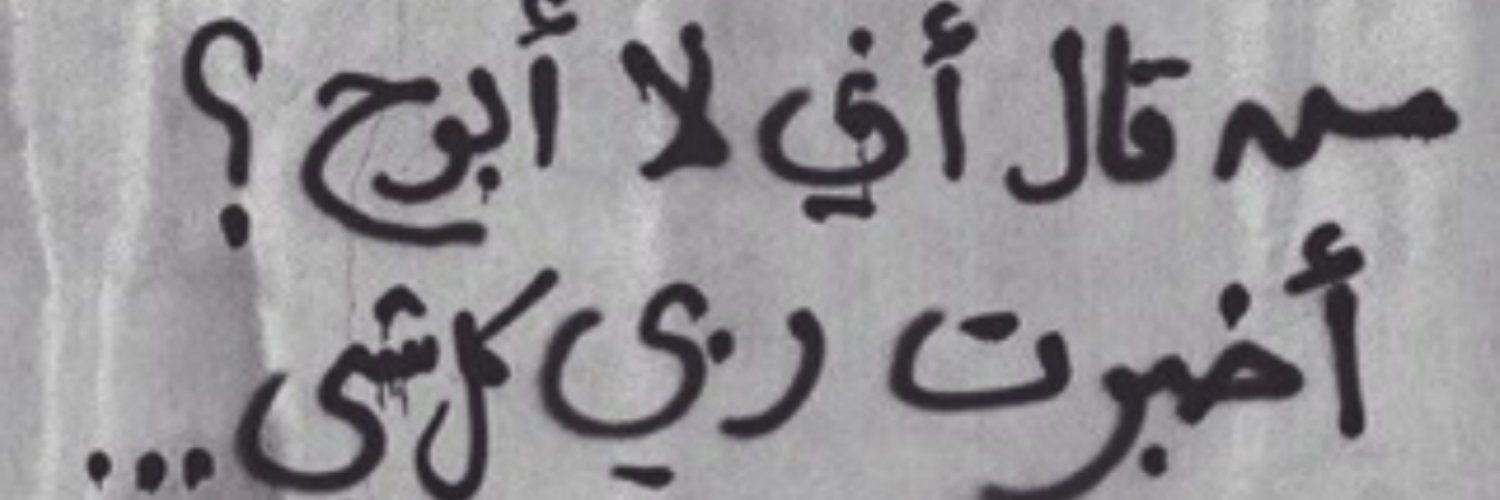 من قال أني لا أبوح ؟
أخبرت ربي كل شى ...